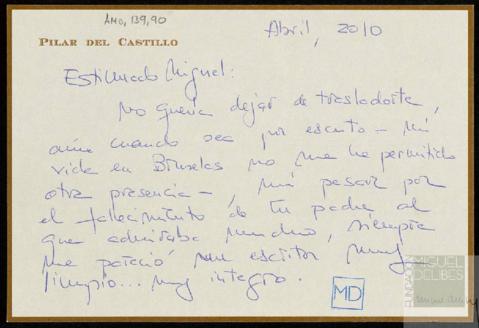 AMD, 139, 90
Abril, 2010
PILAR DEL CASTILLO
Estimado Miguel:
No quería dejar de trasladarte,
aún cuando sea por escrito – mi
vida en Bruselas no me ha permitido
otra presencia –, mi pesar por
el fallecimiento de tu padre al
que admiraba mucho, siempre
me pareció un escritor muy
limpio... muy íntegro.
MD
FUNDACIÓN
MIGUEL
DELIBES